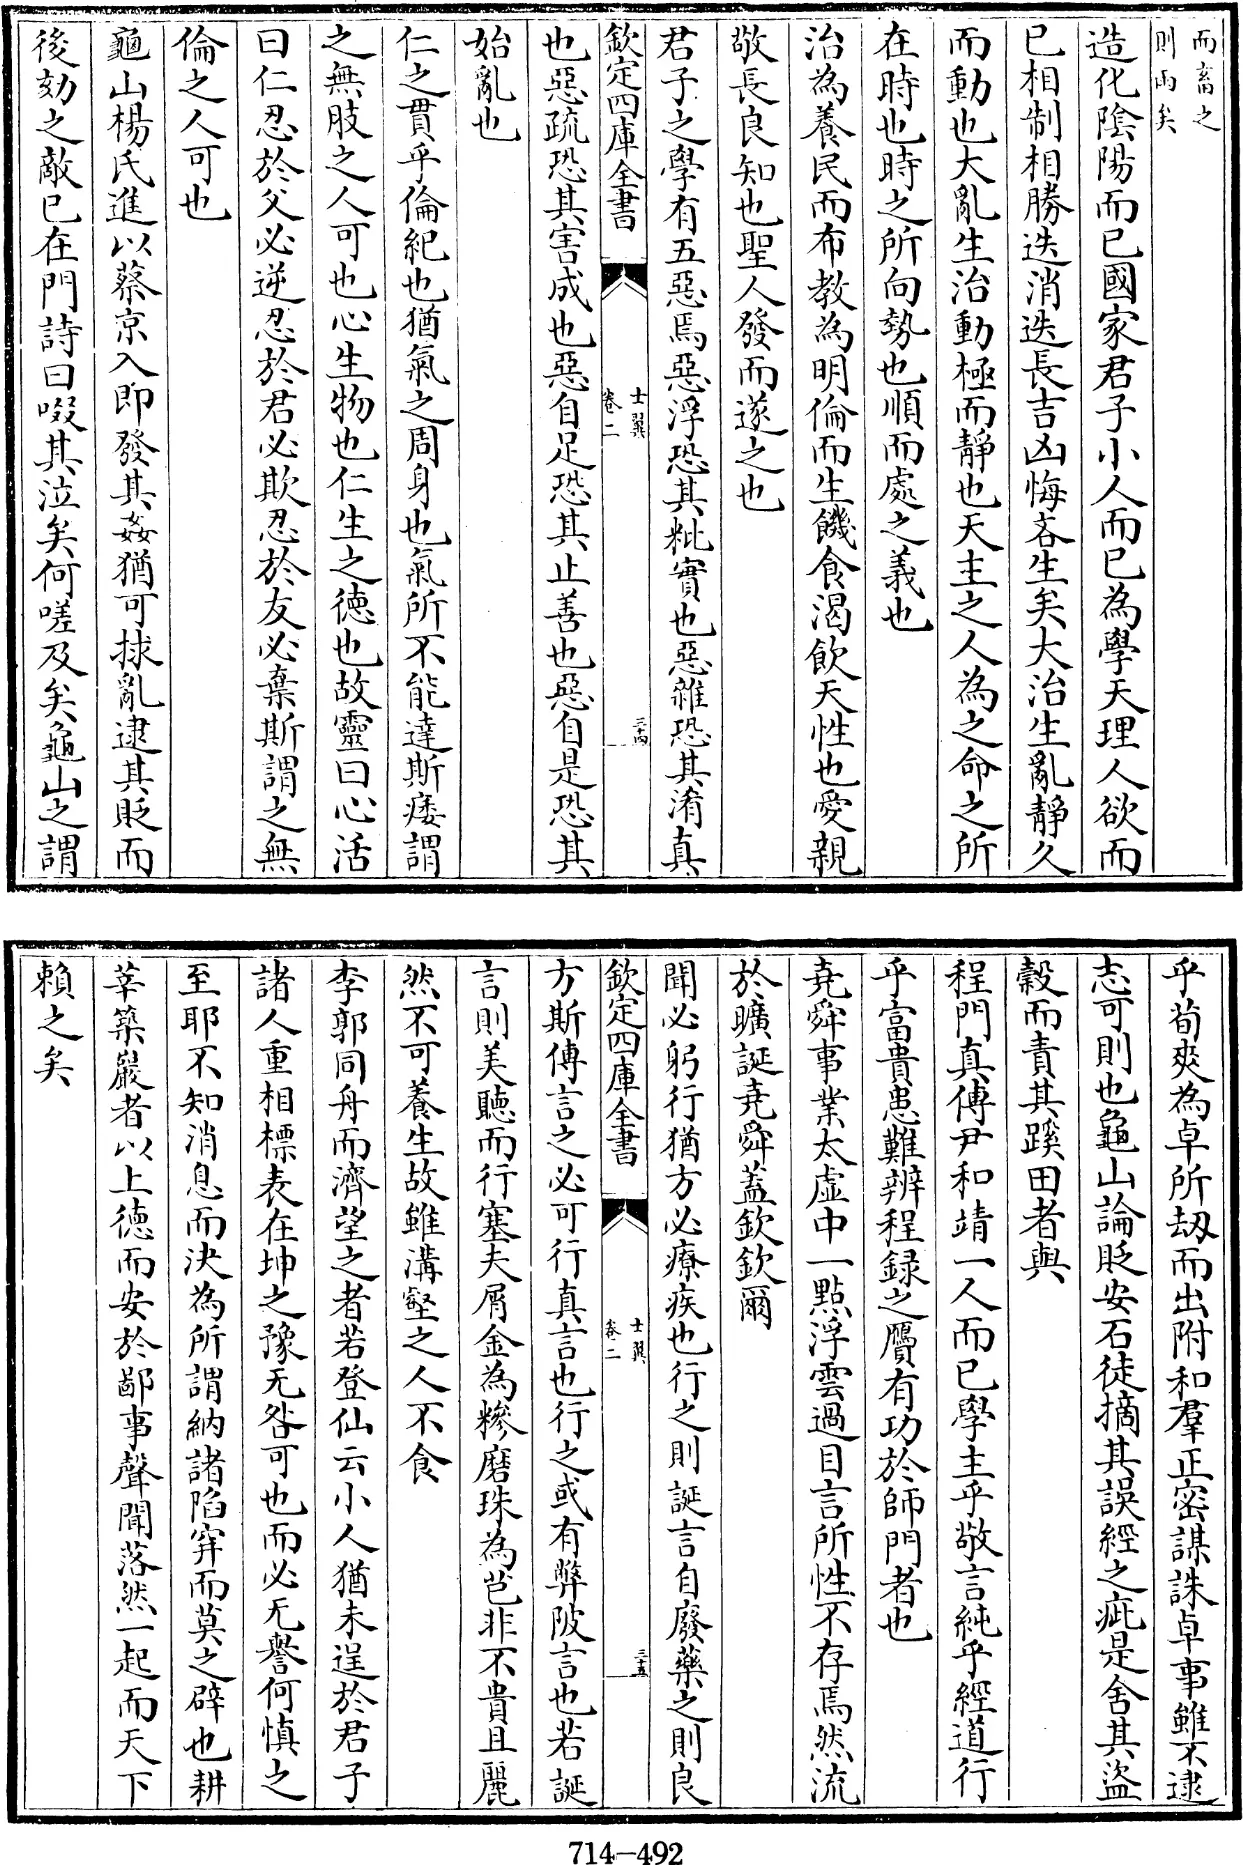 而畜之
則雨矣
造化陰陽而已國家君子小人而已為學天理人欲而
已相制相勝迭消迭長吉凶悔吝生矣大治生亂靜久
而動也大亂生治動極而靜也天主之人為之命之所
在時也時之所向勢也順而處之義也
治為養民而布教為明倫而生饑食渴飲天性也愛親
敬長良知也聖人發而遂之也
君子之學有五惡焉惡浮恐其粃實也惡雜恐其淆真
欽定四庫全書
士翼
卷二
三十四
也惡疏恐其害成也惡自足恐其止善也惡自是恐其
始亂也
仁之貫乎倫紀也猶氣之周身也氣所不能達斯痿謂
之無肢之人可也心生物也仁生之徳也故靈曰心活
曰仁忍於父必逆忍於君必欺忍於友必棄斯謂之無
倫之人可也
龜山楊氏進以蔡京入即發其姦猶可捄亂逮其貶而
後劾之敵已在門詩曰啜其泣矣何嗟及矣龜山之謂
乎荀爽為卓所刼而出附和羣正密謀誅卓事雖不逮
志可則也龜山論貶安石徒摘其誤經之疵是舍其盜
穀而責其蹊田者與
程門真傳尹和靖一人而已學主乎敬言純乎經道行
乎富貴患難辨程録之贗有功於師門者也
堯舜事業太虛中一點浮雲過目言所性不存焉然流
於曠誕堯舜蓋欽欽爾
聞必躬行猶方必療疾也行之則誕言自廢藥之則良
欽定四庫全書
士翼
卷二
三十五
方斯傳言之必可行真言也行之或有弊陂言也若誕
言則美聽而行塞夫屑金為糝磨珠為芑非不貴且麗
然不可養生故雖溝壑之人不食
李郭同舟而濟望之者若登仙云小人猶未逞於君子
諸人重相標表在坤之豫无咎可也而必无譽何慎之
至耶不知消息而決為所謂納諸陷穽而莫之辟也耕
莘築巖者以上徳而安於鄙事聲聞落然一起而天下
賴之矣
714-492